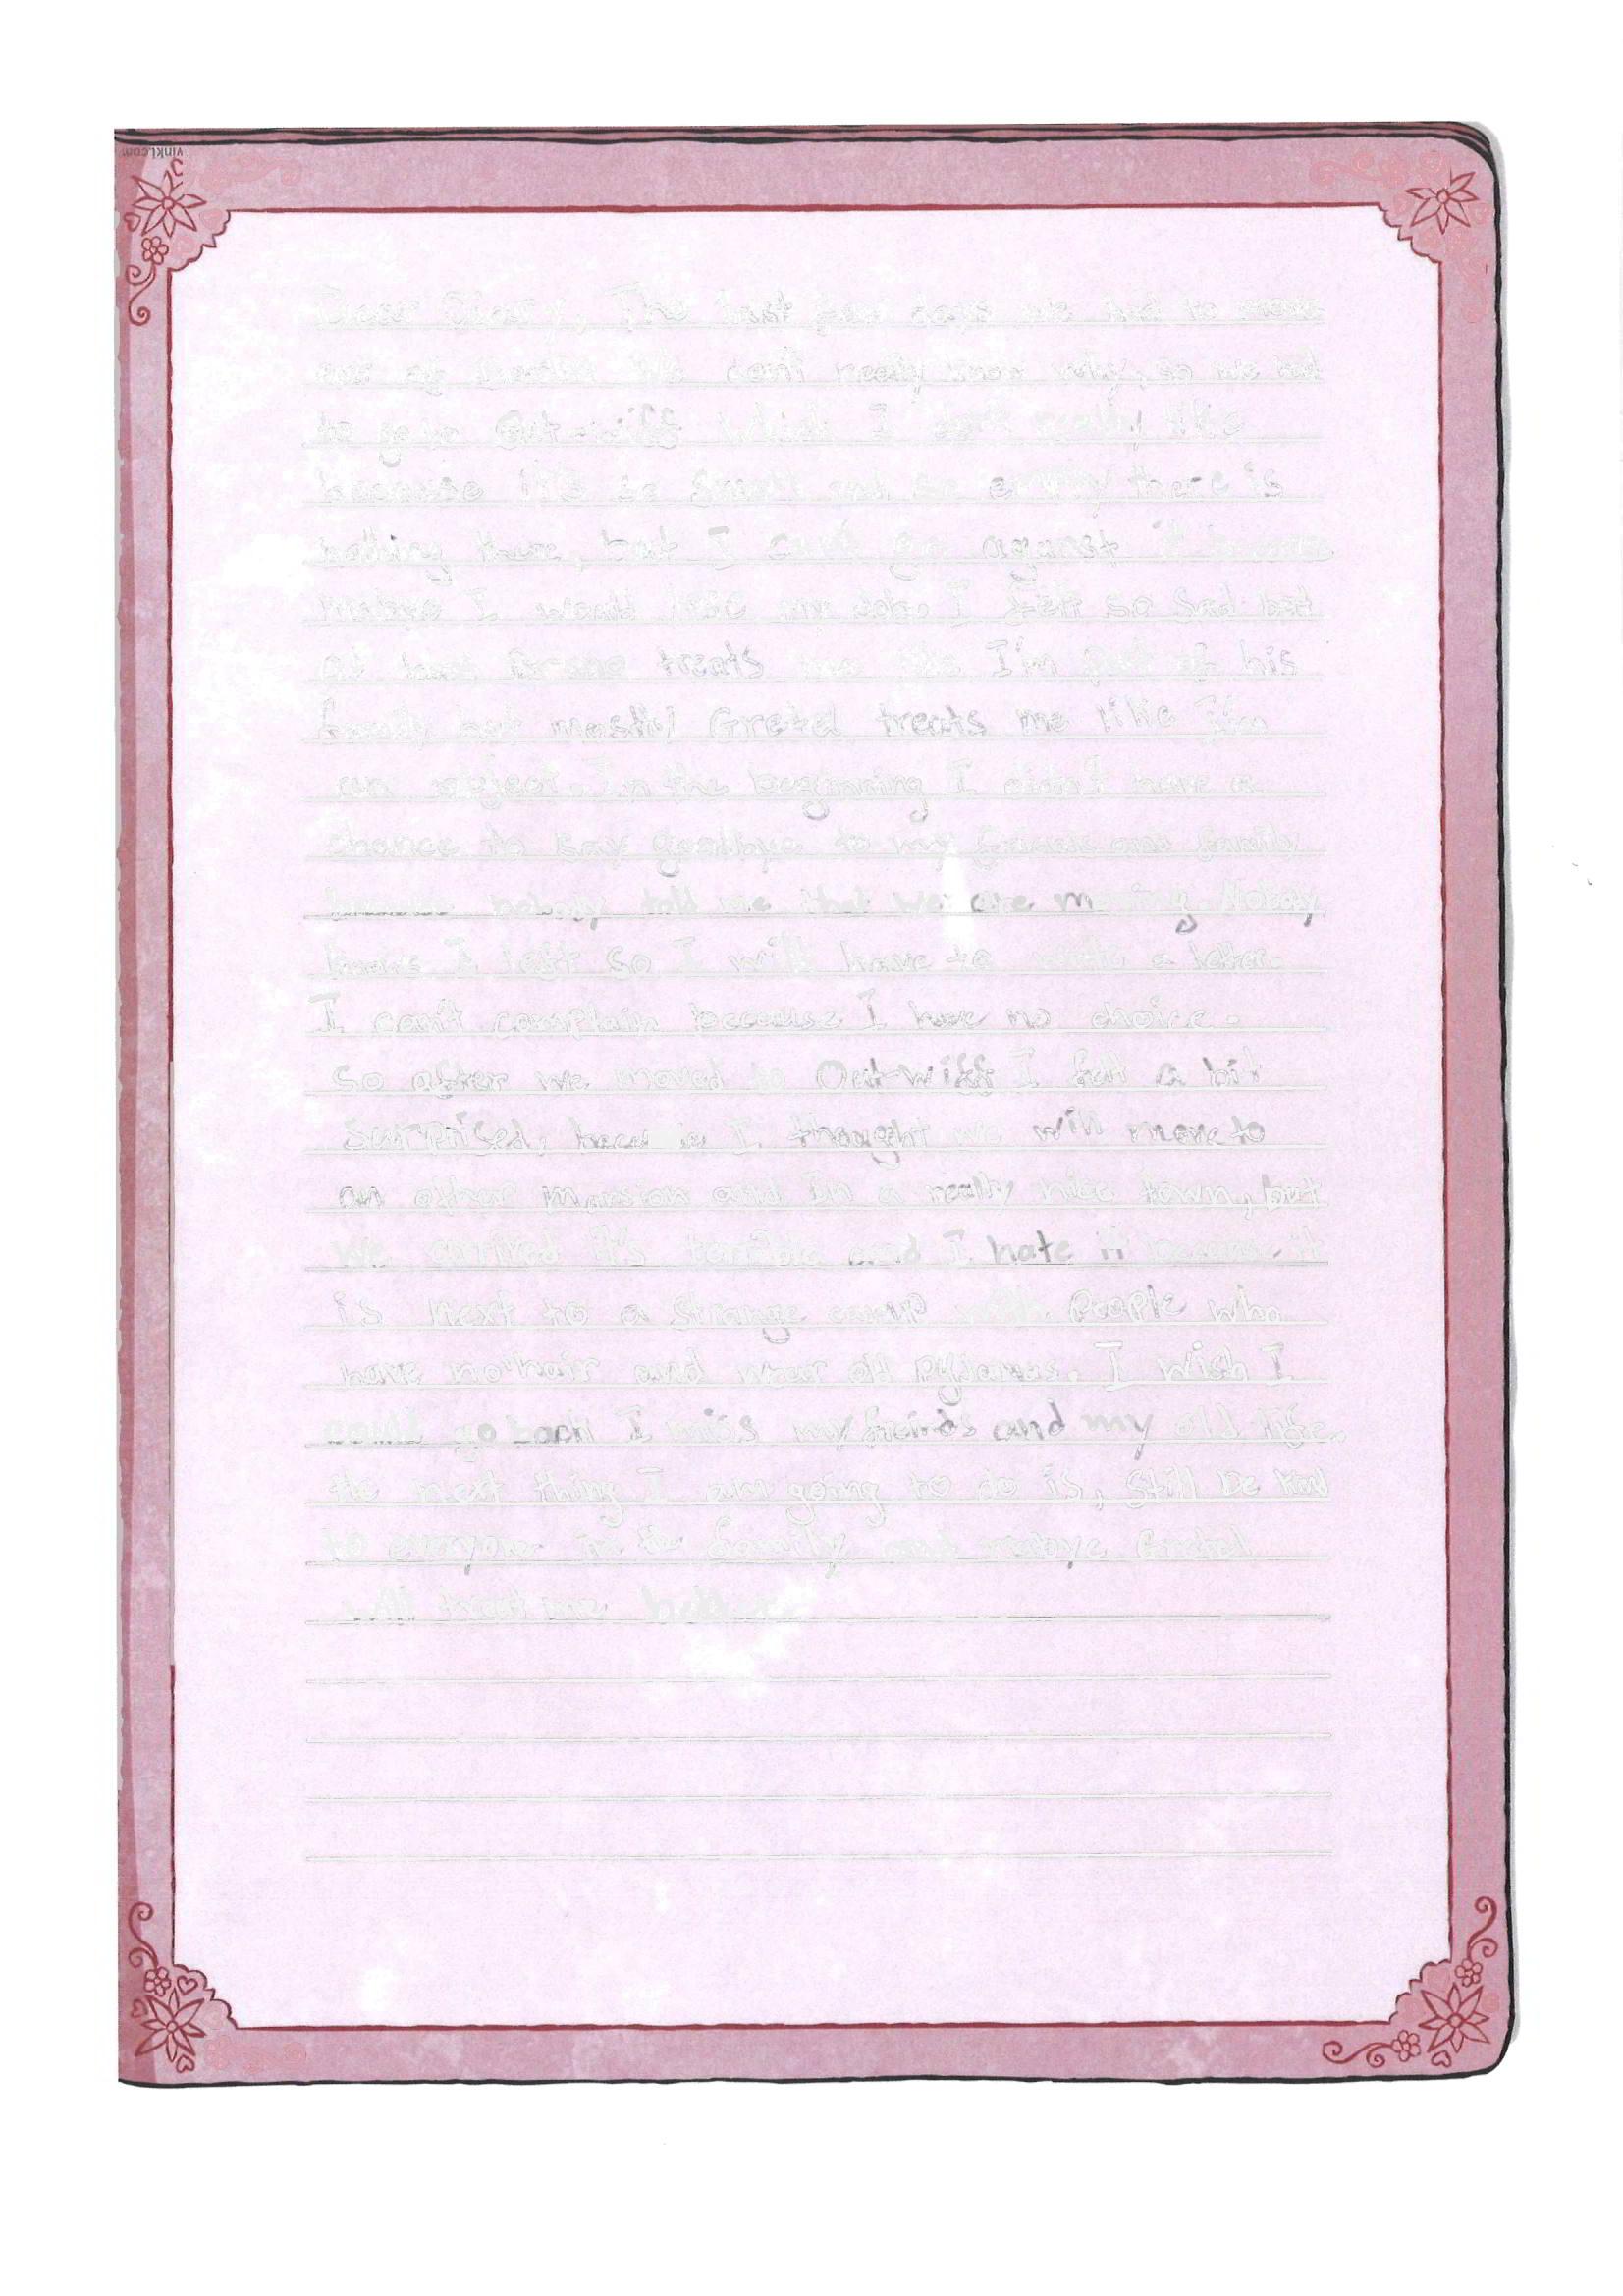 vinkl.com
Dear Diary, The last few days we had to move
out of Berlin We don't really know why, so we had
to go in Out-with which I don't really like
because it's so small and so empty there is
nothing there, but I can't go against it because
I would lose my job. I felt so sad but
at least treats me like I'm part of his
family but mostly Gretel treats me like I'm
an object. In the beginning I didn't have a
chance to say goodbye to my friends and family
because nobody told me that we are moving. Nobody
knows I left so I will have to write a letter.
I can't complain because I have no choice.
So after we moved to Out-with I felt a bit
surprised, because I thought we will move to
an other mansion and in a really nice town, but
we arrived it's terrible and I hate it because it
is next to a strange camp with people who
have no hair and wear old pyjamas. I wish I
could go back I miss my freinds and my old life.
the next thing I am going to do is, still be kind
to everyone in the family and maybye Gretel
will treat me better.